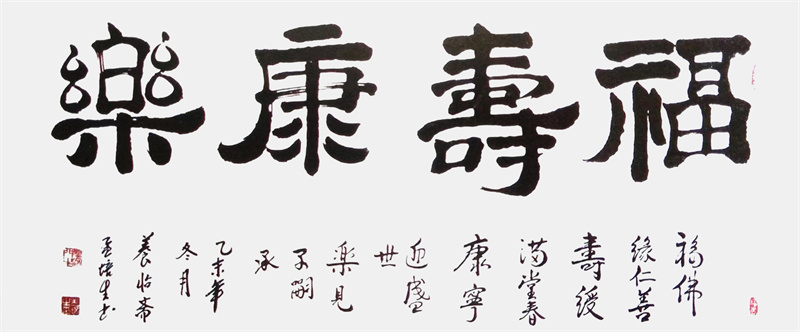 福壽康樂
福佛
緣仁善
壽綬
满堂春
康寧
迎盛
世
樂見
子嗣
承
乙未年
冬月
養怡斋
孟培生书